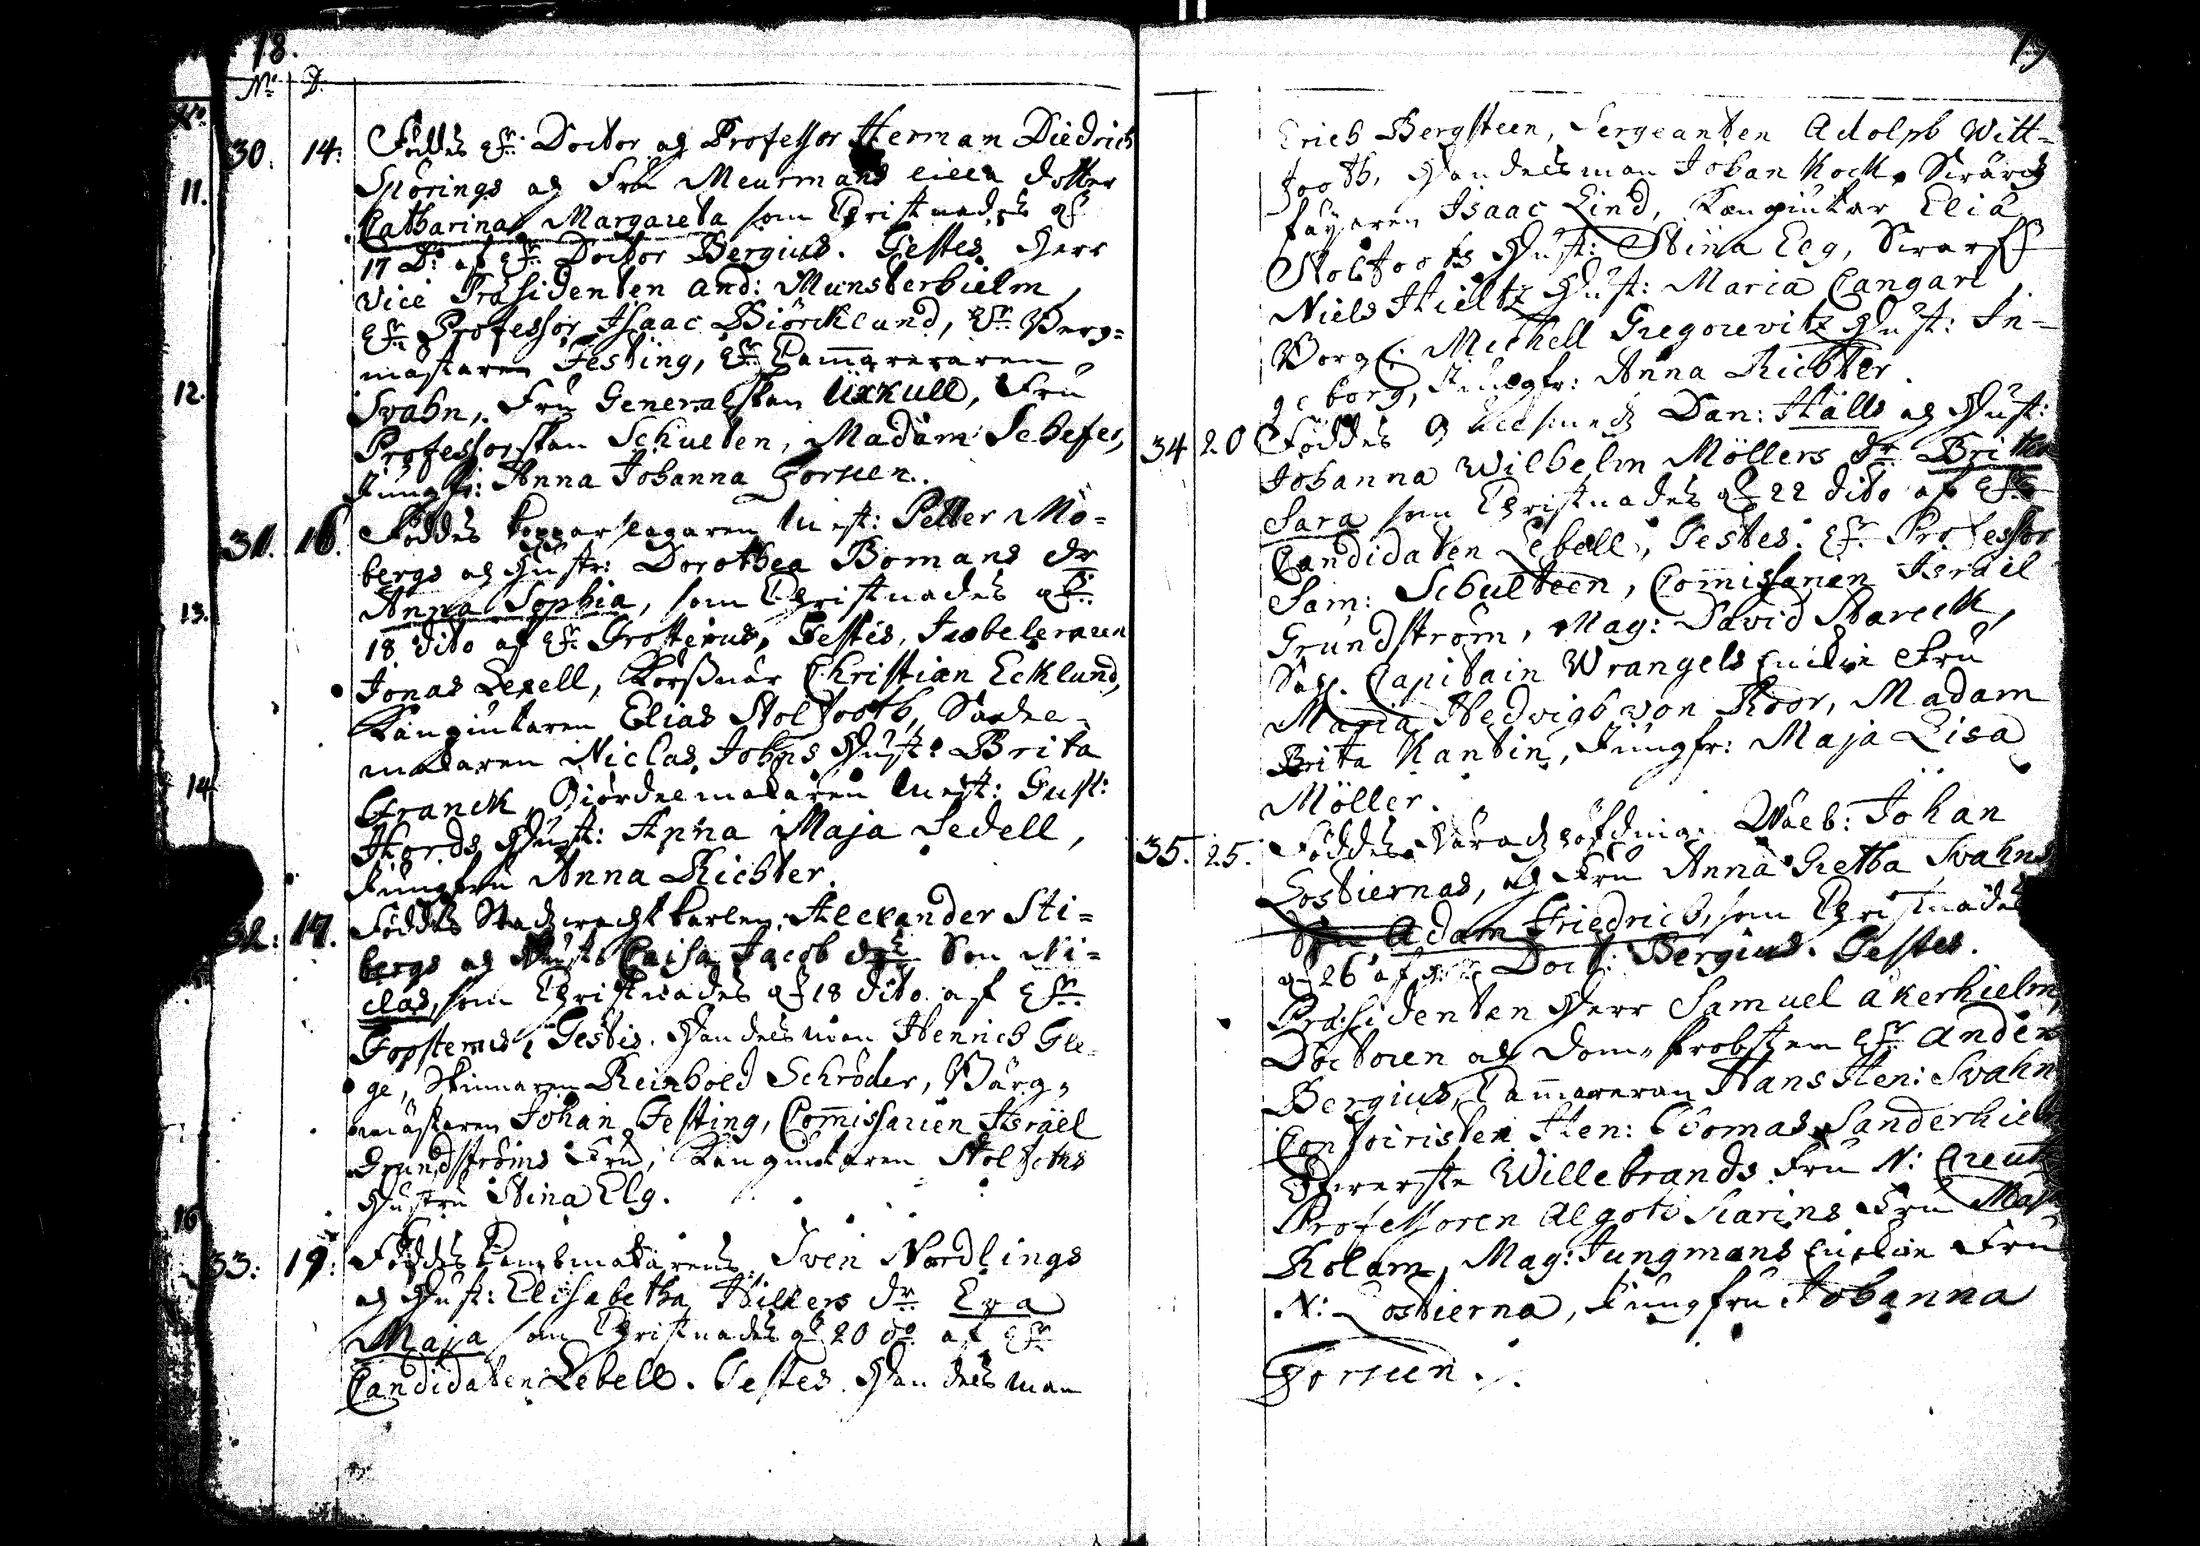 18.
No D.
30. 14. Föddes Hr Doctor och Professor Herman Diedrich
Spörings och Fru Meurmans lilla dotter
Catharina Margareta som Christnades d.
17 D: af Hr Doctor Bergius. Testes Herr
Vice Præsidenten And: Munsterhielm,
Hr Professor Isaac Biörcklund, Hr Berg-
mästaren Festing, Hr Camereraren
Svahn, Fru Generalskan Üxkull, Fru
Professorskan Schulten, Madam Schefer,
Jungfr: Anna Johanna Forseen.
31. 16. Föddes kopparslagaren Mest: Petter Mö-
bergs och Hustr: Dorothea Bomans dr
Anna Sophia, som Christnades d.
18 dito af Hr Testis,
Jonas Lexell, Körsnär Christian Ecklund,
Kängiutaren Elias Stolfooth, Sadel-
makaren Niclas Johns Hust: Brita
Granck, Giördelmakaren Mest: Gust:
Hords Hust: Anna Maja Sedell,
Jungfru Anna Richter.
32. 17. Föddes Stadzvacht karlen Alexander Sti-
bergs och Hust: Caisa Jacobs dr Son Ni-
clas, som Christnades d 18 dito af Hr
Testis. Handelsman Henrich Gle-
ge, Skinnaren Reinhold Schröder, Bärg-
mästaren Johan Festing, Commissarien Israel
Grundströms Fru, Kangiutaren Stolfoths
Hustru Stina Elg.
33. 19. Föddes Kambmakarens Sven Nordlings
och Hust: Elisabetha Hillers dr Eva
Maja som Christnades d 20 do af Hr
Candidaten Lebell. Testes. Handelsman
11.
12.
13.
14
16
19
Erich Bergsteen, Sergeanten Adolph Witt-
footh, Handelsman Johan Kock, Svärd
fäyaren Isaac Lind, Kangiutar Elia
Stolfooths Hust: Stina Elg, Svarf
Niels Hieltz Hust: Maria Cangarl,
Borg: Michell Gregorevitz Hust: In-
geborg, Jungfr: Anna Richter.
34 20 Föddes Gulsmed Dan: Hälls och Hust:
Johanna Wilhelm Möllers dr Britha
Sara som Christnades d 22 dito af Hr
Candidaten Lebell, Testes: Hr Professor
Sam: Schulteen, Commissarien Israel
Grundström, Mag: David Starck,
Sal. Capitain Wrangels Enckia Fru
Maria Hedvigh von Roor, Madam
Brita Kantin, Jungfr: Maja Lisa
Möller.
35. 25. Föddes Häradzhöfding. Johan
Lostiernas, och Fru Anna Gretha Svahns
Son Adam Friedrich, som Christnades
d 26 af Doct: Bergius. Testes.
Præsidenten Herr Samuel Åkerhielm,
Doctoren och Dom-Probsten Hr Anders
Bergius, Cammereraren Hans Hen: Svahn
Contoiristen Hen: Thomas Sanderhielm
Öfverste Willebrands Fru N: Creutz
Professoren Algoth Scarins Fru Maja
Kolam, Mag: Jungmans Enckia Fru
N: Lostierna, Jungfru Johanna
Forseen.